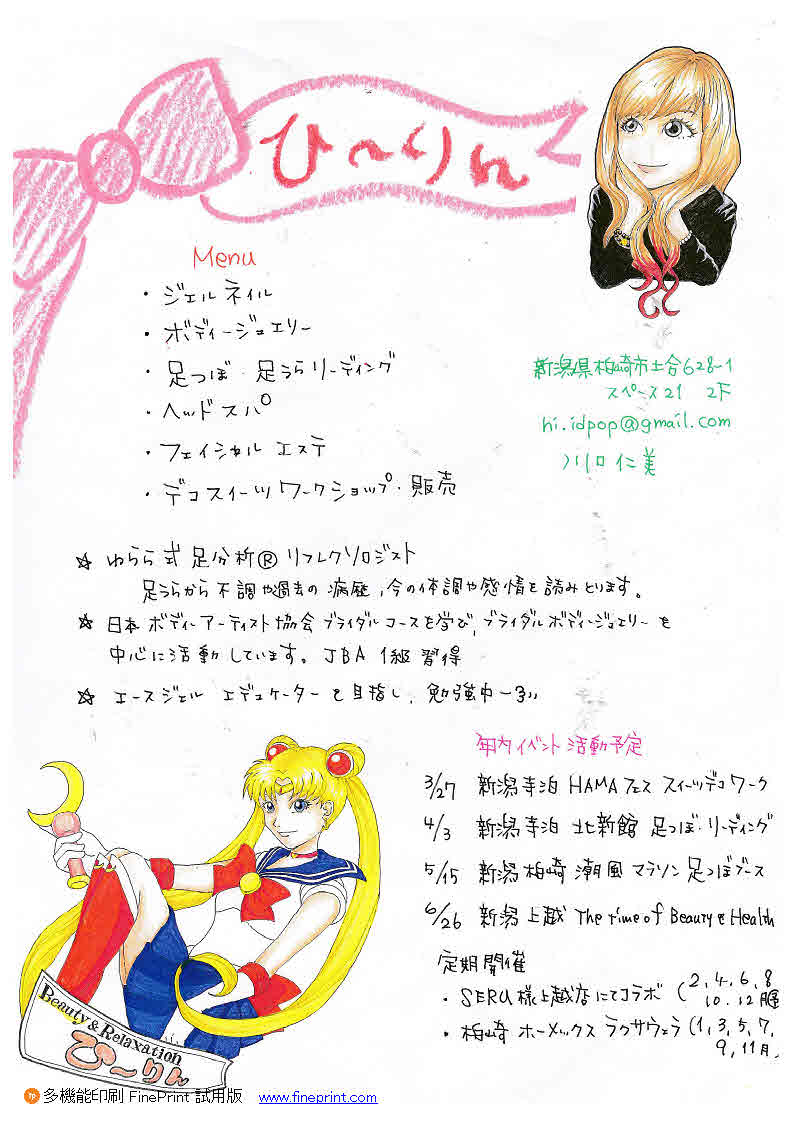 ひ〜りん
Menu
・ジェルネイル
・ボディージュエリー
・足つぼ・足うらリーディング
・ヘッドスパ
・フェイシャル エステ
・デコスイーツワークショップ・販売
新潟県柏崎市土合628-1
スペース21 2F
hi.idpop@gmail.com
川口仁美
☆ ゆらら式足分析® リフレクソロジスト
足うらから不調や過去の病歴,今の体調や感情を読みとります。
☆ 日本ボディーアーティスト協会ブライダルコースを学び,ブライダルボディージュエリーを
中心に活動しています。JBA 1級習得
☆ エースジェル エデュケーターを目指し,勉強中〜3)))
年内イベント活動予定
3/27 新潟寺泊 HAMAフェス スイーツデコワーク
4/3 新潟寺泊 北新館 足つぼ・リーディング
5/15 新潟柏崎 潮風マラソン足つぼブース
6/26 新潟上越 The time of Beauty & Health
定期開催
・SERU様上越店にてコラボ (2,4,6,8
10.12月
・柏崎 ホーメックス ラクサヴェラ (1,3,5,7,
9,11月,
Beauty&Relaxation
ひ〜りん
多機能印刷 FinePrint 試用版 www.fineprint.com